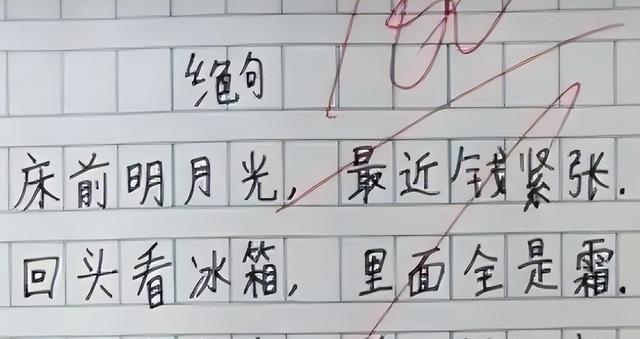 绝句
床前明月光,最近钱紧张.
回头看冰箱,里面全是霜.